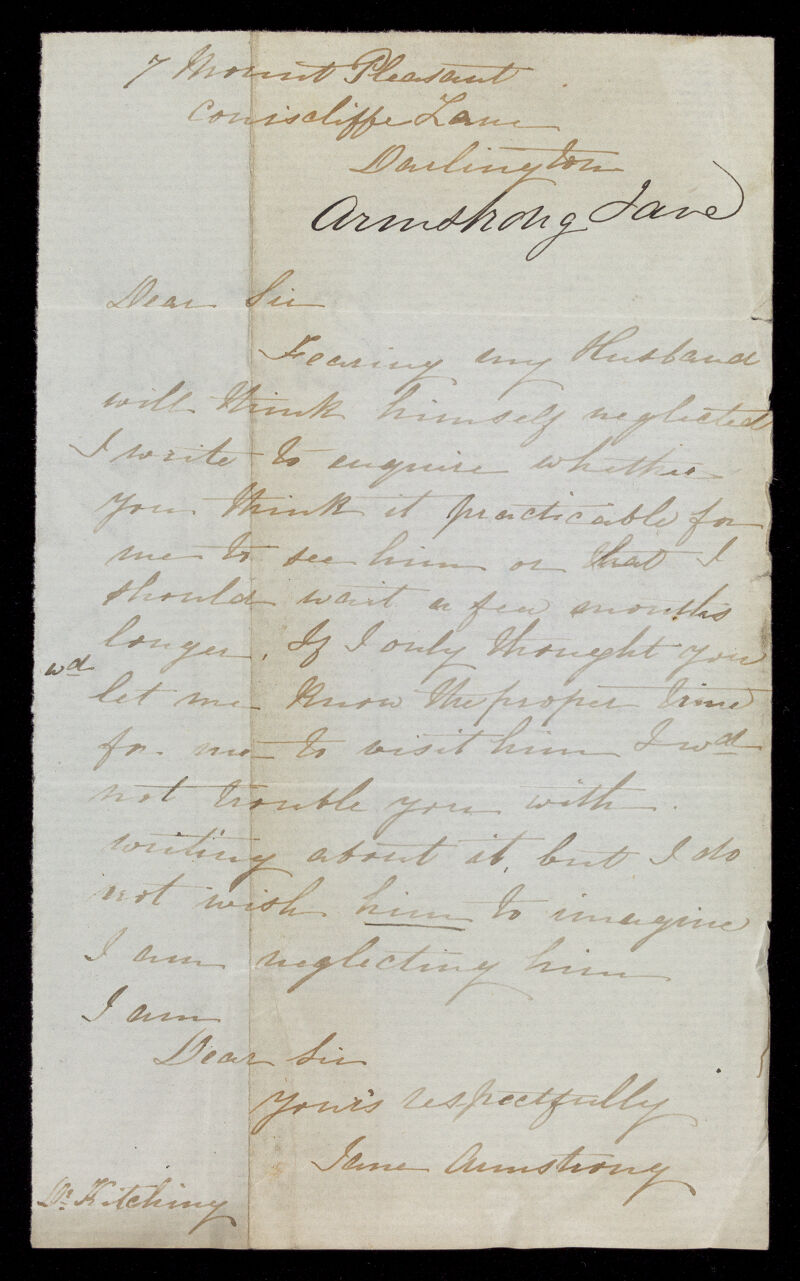 7 Mount Pleasant
Coniscliffe Lane
Darlington
Armstrong Jane
Dear Sir
Fearing my Husband
will think himself neglected
I write to enquire whether
you think it practicable for
me to see him or that I
should wait a few months
longer. If I only thought you
wd
let me know the proper time
for me to visit him I wd
not trouble you with
writing about it, but I do
not wish him to imagine
I am neglecting him
I am
Dear Sir
your's respectfully
Jane Armstrong
Dr. Kitching